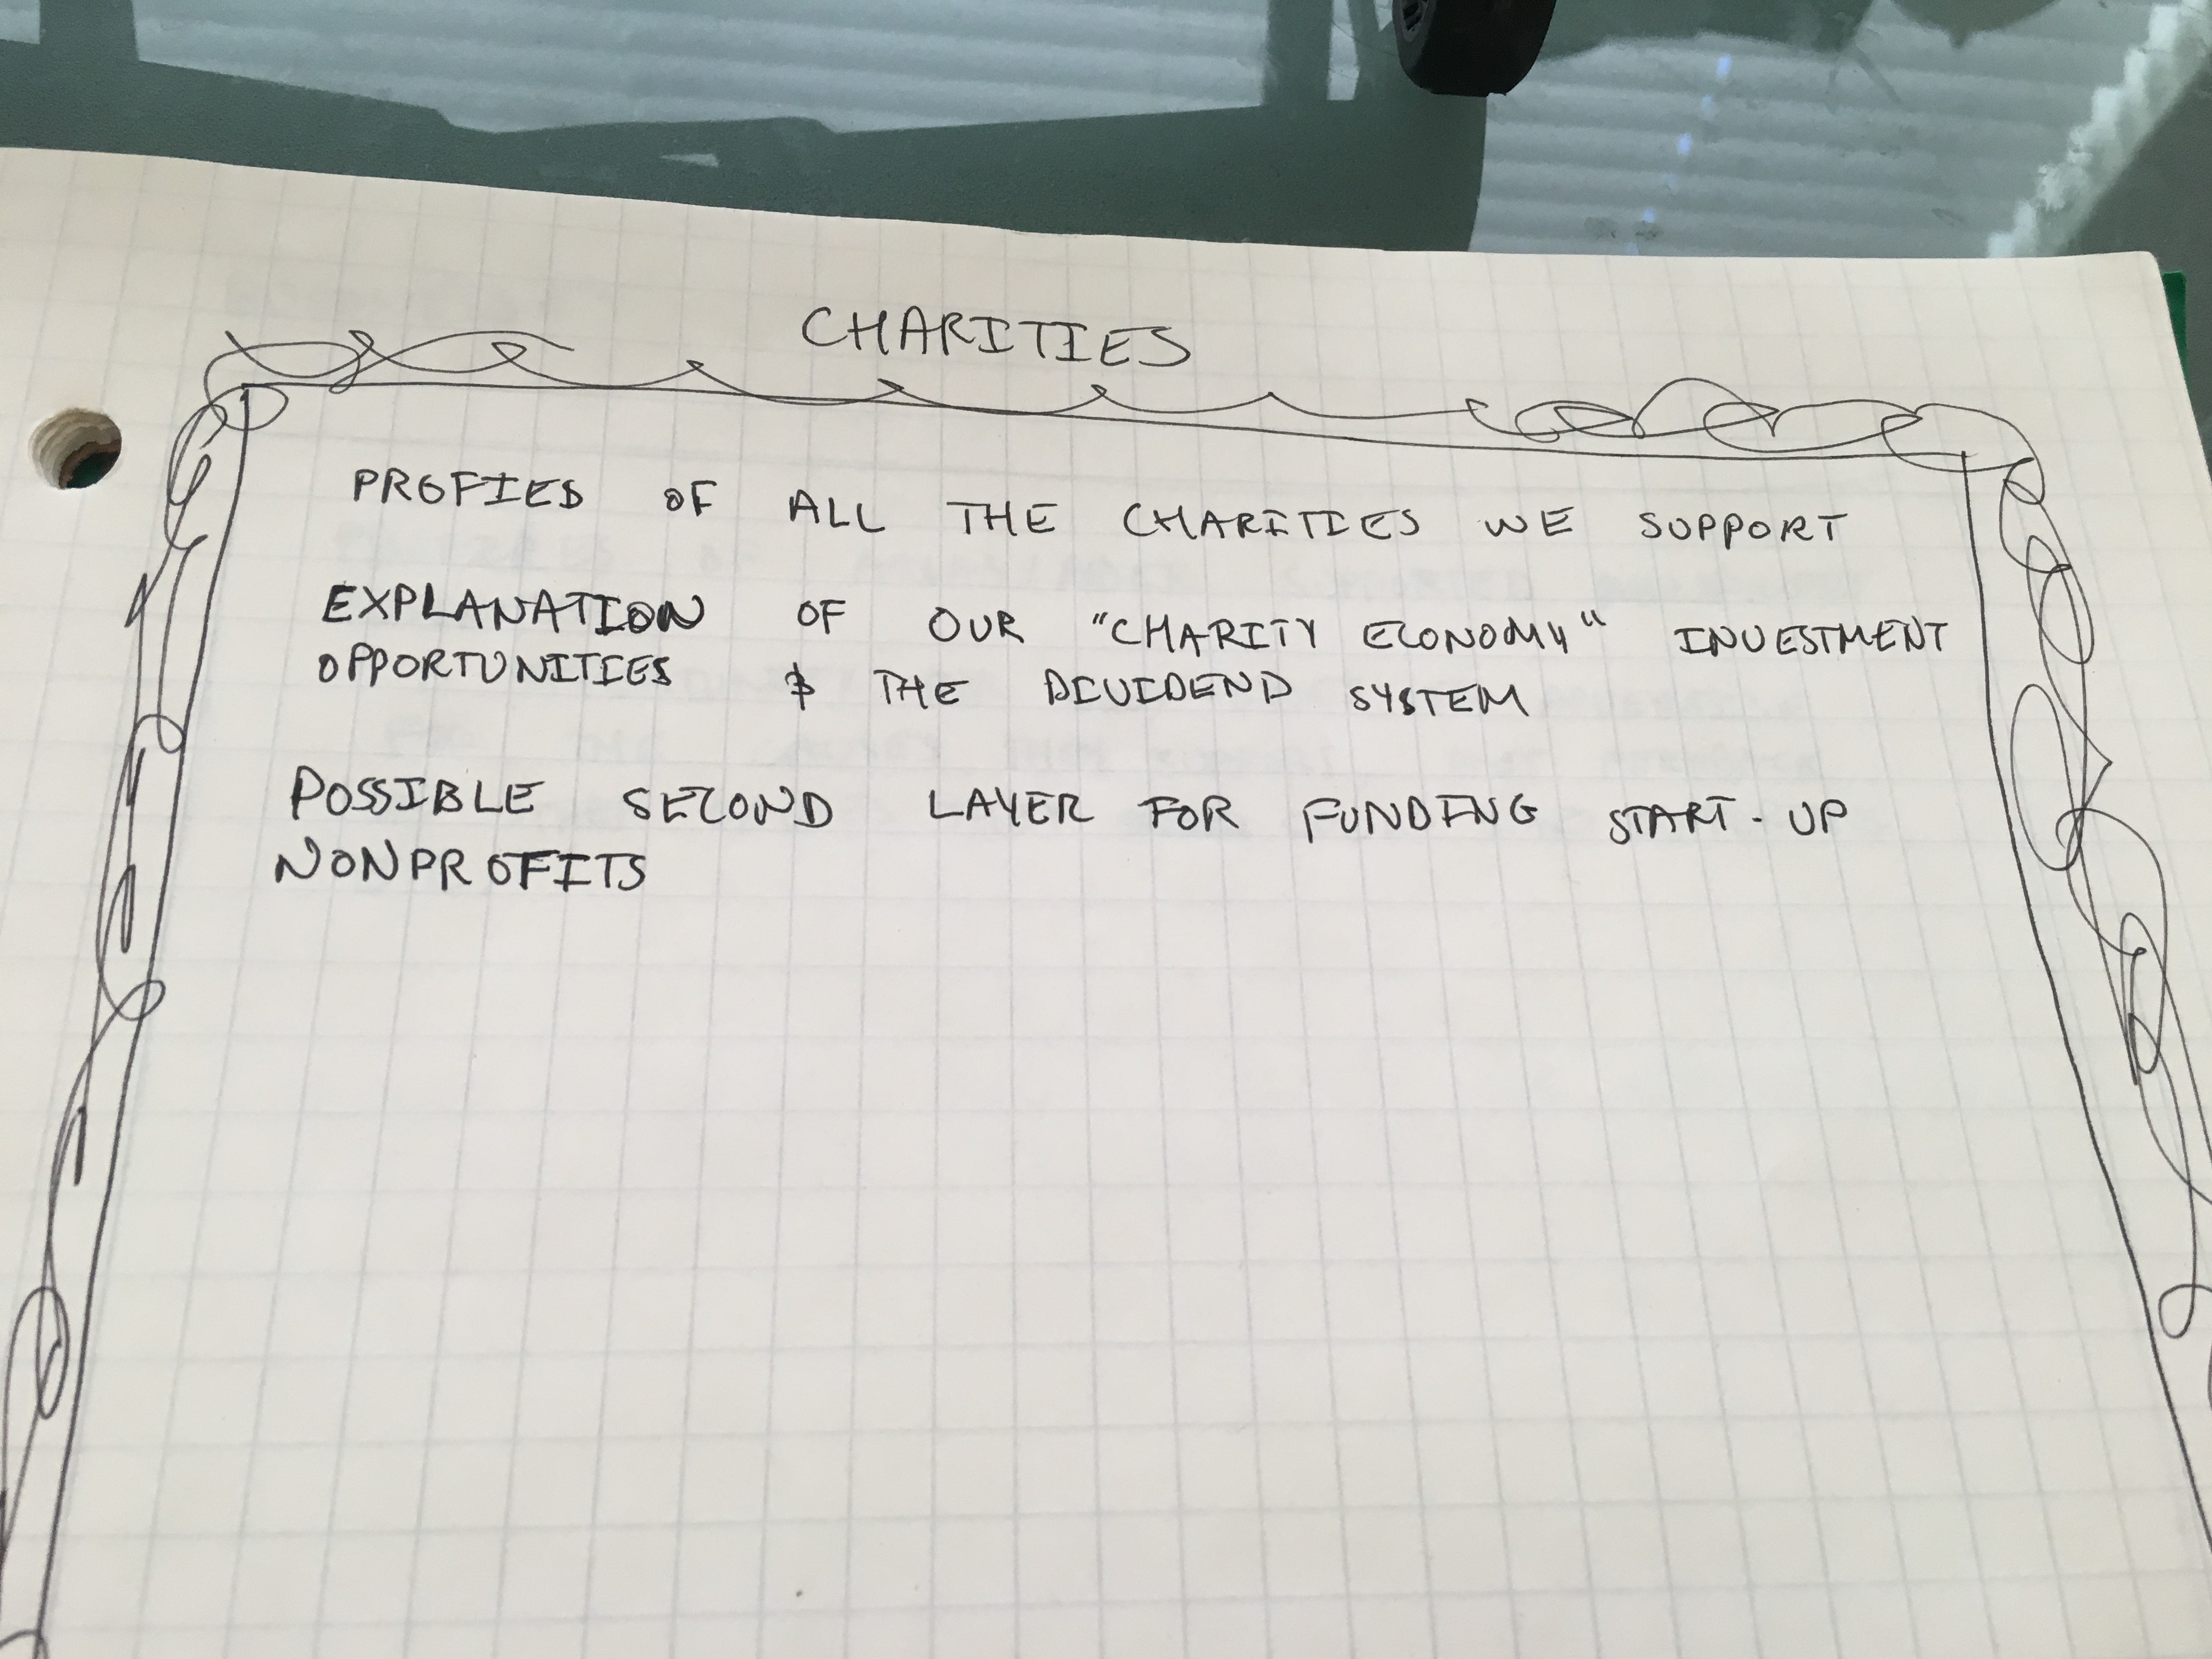 CHARITIES
PROFIES OF ALL THE CHARITIES WE SUPPORT
EXPLANATION OF OUR "CHARITY ECONOMY" INVESTMENT
OPPORTUNITIES & THE DIVIDEND SYSTEM
POSSIBLE SECOND LAYER FOR FUNDING START-UP
NONPROFITS